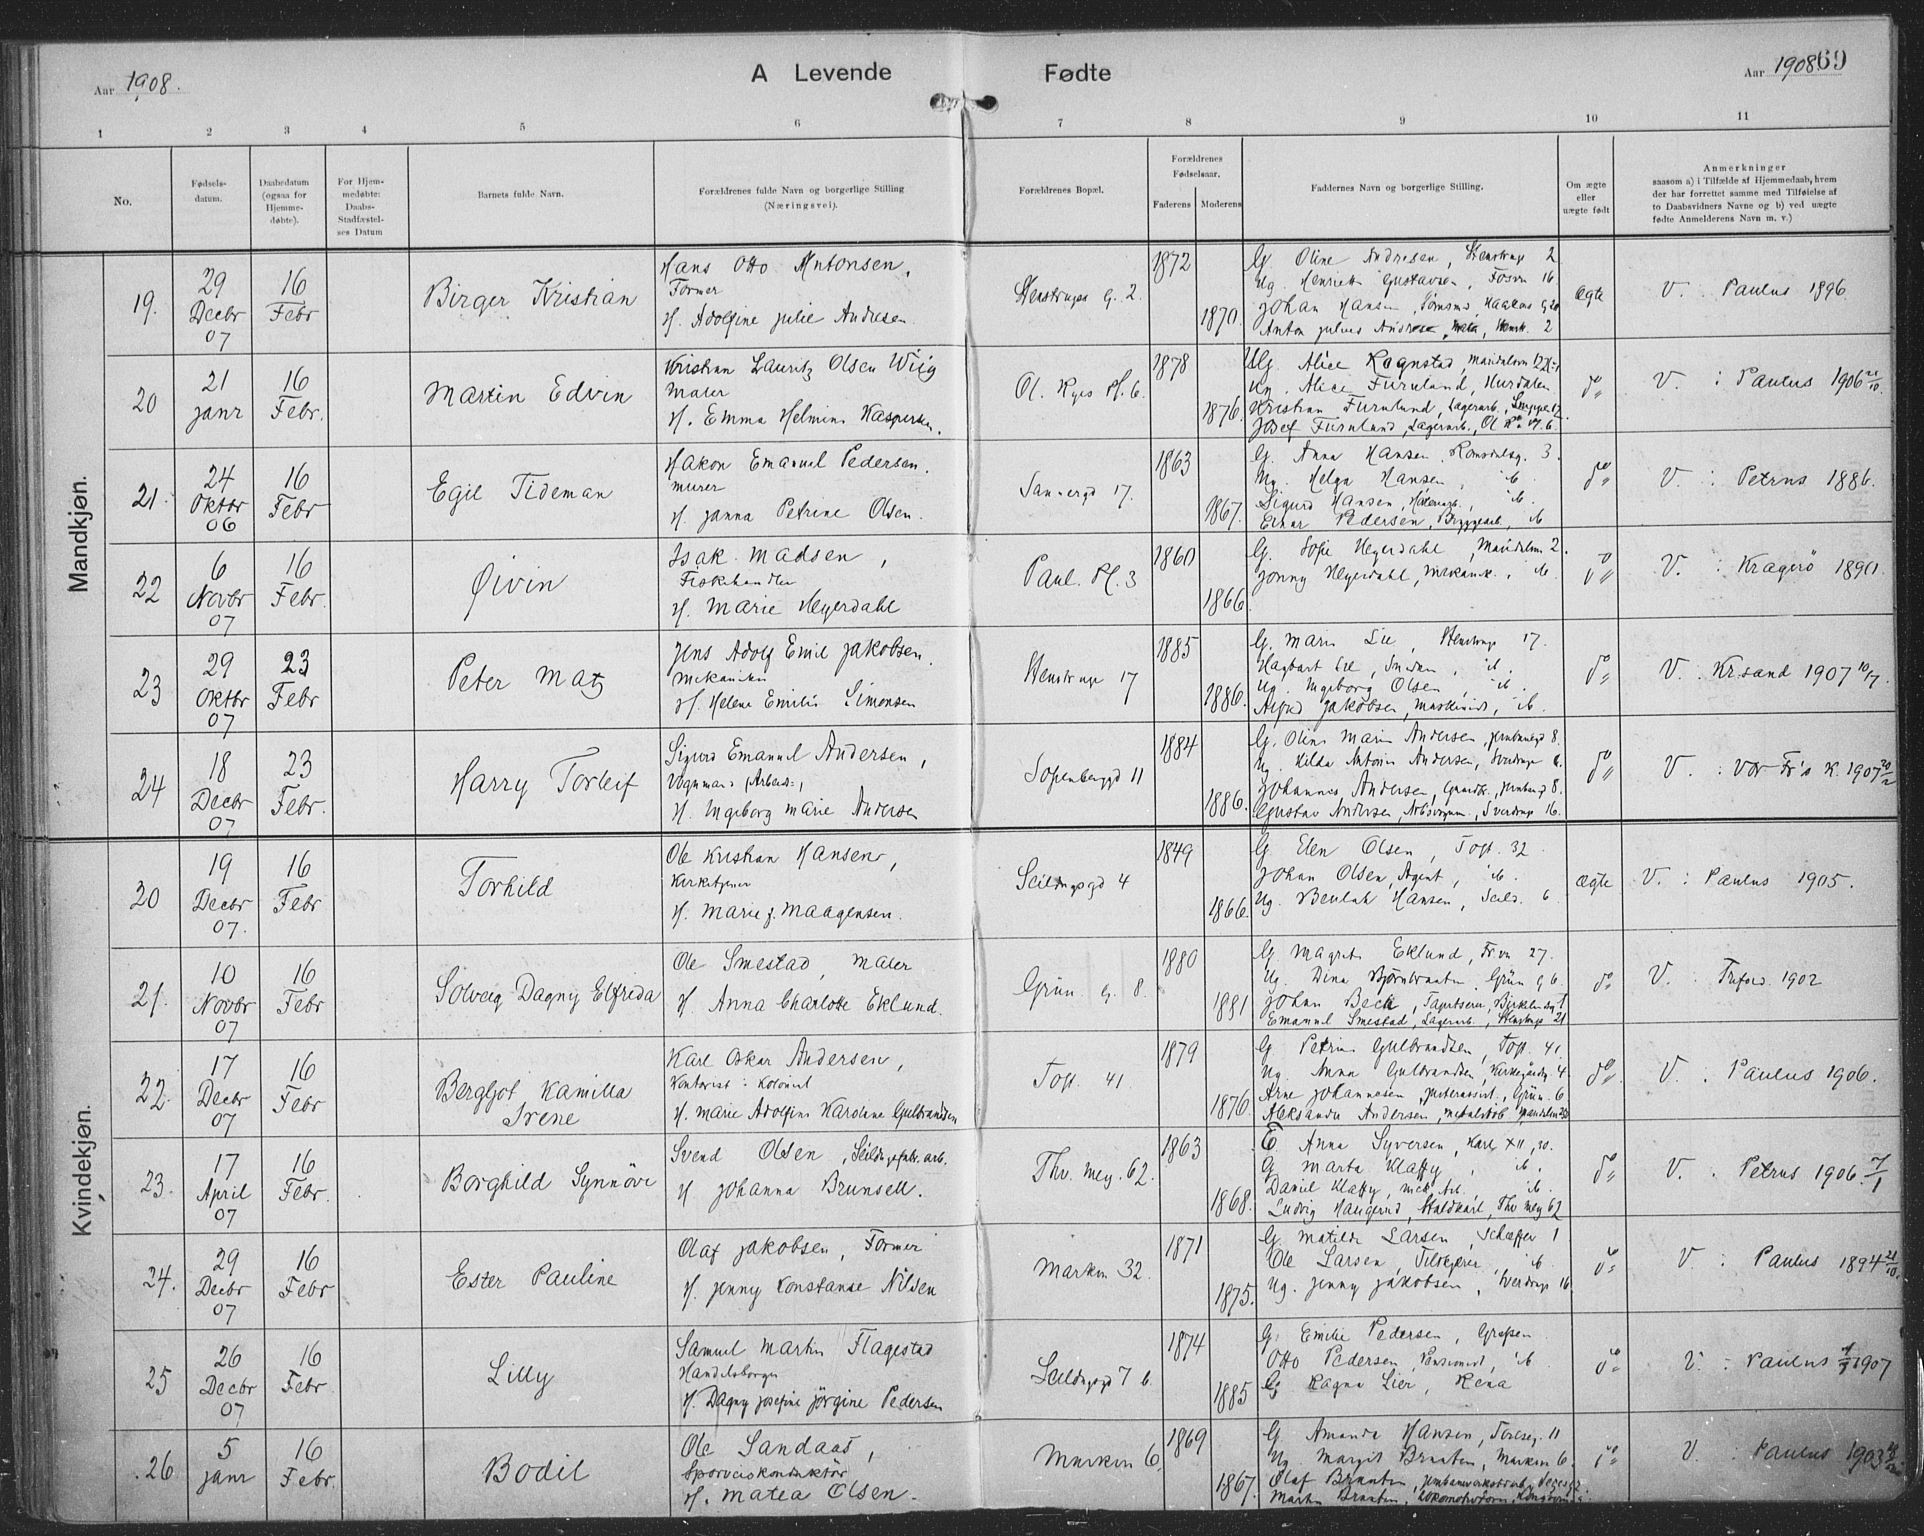 Aar 1908.
A Levende Fødte
Aar 1908 69
1 2 3 4 5 6 7 8 9 10 11
No.
Fødsels-
datum.
Daabsdatum
(ogsaa for
Hjemme-
døbte).
For Hjem-
medøbte:
Daabs-
Stadfæstel-
ses Datum
Barnets fulde Navn.
Forældrenes fulde Navn og borgerlige Stilling
(Næringsvei).
Forældrenes Bopæl.
Forældrenes
Fødselsaar.
Faderens Moderens
Faddernes Navn og borgerlige Stilling.
Om ægte
eller
uægte født
Anmerkninger
saasom a) i Tilfælde af Hjemmedaab, hvem
der har forrettet samme med Tilføielse af
to Daabsvidners Navne og b) ved uægte
fødte Anmelderens Navn m. v.)
Mandkjøn.
19.
29
Decbr
07
16
Febr
Birger Kristian
Hans Otto Antonsen,
Former
H. Adolfine Julie Andresen
Stenstrupsg. 2.
1872
1870.
G. Oline Andresen, Stenstrup 2
Ug. Henriette Gustavsen, Fosvn 16.
Johan Hansen
Anton Julius Andresen
Ægte
V. Paulus 1896
20
21
Janr
16
Febr.
Martin Edvin
Kristian Lauritz Olsen Wiig
Maler
H. Emma Helmine Kaspersen.
Ol. Ryes Pl. 6.
1878
1876.
Ug. Alice Rognstad, Maridalsvn
Ug. Alice Furulund, Hurdalen
Kristian Furulund, Lagerarb.
Josef Furulund, Lagerarb.
do
V. : Paulus 1906 21/10
21.
24
Oktbr
06
16
Febr
Egil Tideman
Hakon Emanuel Pedersen.
Murer
H. Janna Petrine Olsen.
Sannergd 17.
1863
1867.
G. Anna Hansen, Romsdalsg. 3.
Ug. Helga Hansen, ib.
Sigurd Hansen, ib.
Einar Pedersen, Bryggearb., ib
do
V. : Petrus 1886.
22
6
Novbr
07
16
Febr.
Øivin
Isak Madsen,
Fiskehandler
H. Marie Heyerdahl
Paul. Pl. 3
1860
1866.
G. Sofie Heyerdahl, Maridalsvn 2.
Jonny Heyerdahl, Mekanik., ib.
do
V. : Kragerö 1890.
23
29
Oktbr
07
23
Febr
Peter Matz
Jens Adolf Emil Jakobsen.
Mekaniker
H. Helene Emilie Simonsen
Stenstrupg 17
1885
1886.
G. Marie Lie, Stenstrupg 17.
Hagbart Lie, Smeden, ib.
Ug. Ingeborg Olsen, ib.
Alfred Jakobsen, Maskinist, ib.
do
V. : Kr.sand 1907 10/17.
24
18
Decbr
07
23
Febr.
Harry Torleif
Sigurd Emanuel Andersen,
Vognmand (Arbeids-,
H. Ingeborg Marie Andersen
Sofienberggd 11
1884
1886.
G. Oline Marie Andersen, Jernbanegd 8.
Ug. Hilda Antonie Andersen, Sverdrups 6.
Johannes Andersen
Gustav Andersen, Sverdrups 16.
do
V. : Vor Fr's K. 1907 20/2
Kvindekjøn.
20
19
Decbr
07.
16
Febr
Torhild
Ole Kristian Hansen,
Kirketjener
H. Marie J. Maagensen.
Seildugsgd 4
1849
1866.
G. Elen Olsen, Toft. 32
Johan Olsen, Agent, ib.
Ug. Beulah Hansen, Seild. 6
Ægte
V. : Paulus 1905.
21.
10
Novbr
07
16
Febr
Solveig Dagny Elfrida
Ole Smestad, Maler
H. Anna Charlotte Eklund.
Grün. g. 8.
1880
1881
G. Magrete Eklund, Tr.vn 27.
Ug. Dina Bjørnbraaten, Grün g 6
Johan Beck, Tapetserer
Emanuel Smestad, Lagerarb., Stenstrups 21
do
V. : Trefold. 1902
22.
17
Decbr
07
16
Febr
Bergljot Kamilla
Irene
Karl Oskar Andersen,
Kontorist : Kolonial
H. Marie Adolfine Karoline Gulbrandsen
Toft. 41.
1879
1876.
G. Petrine Gulbrandsen, Toft. 41.
Ug. Anna Gulbrandsen, Kirkegårdsg 4.
Arne Johannesen, Grün. 6
Aleksander Andersen
do
V. : Paulus 1906.
23.
17
April
07
16
Febr.
Borghild Synnöve
Svend Olsen, Seildugsfabr. arb.
H. Johanna Brunsell.
Thv. Mey. 62.
1863
1868.
E. Anna Syversen, Karl XII, 20.
G. Marta Klaffy, ib.
Daniel Klaffy, Mek. Arb., ib.
Ludvig Haugerud, Staldkarl, Thv Mey 62
do
V. : Petrus 1906. 7/1
24.
29
Decbr
07
16
Febr.
Ester Pauline
Olaf Jakobsen, Former
H. Jenny Konstanse Nilsen
Marken 32.
1871
1875.
G. Matilde Larsen, Schæffer 1
Ole Larsen, ib.
Ug. Jenny Jakobsen, Sverdrups 16
do
V. : Paulus 1894 21/10.
25
26
Decbr
07
16
Febr.
Lilly
Samuel Martin Flagestad
Handelsborger
H. Dagny Josefine Jörgine Pedersen
Seildugsgd 7 b.
1874
1885
G. Emilie Pedersen, Grefsen
Otto Pedersen, Pensionist, ib.
G. Ragna Lier, Rena
do
V. : Paulus 1907
.26
5
Janr
16
Febr.
Bodil
Ole Sandaas,
Sporveiskonduktör
H. Matea Olsen.
Marken 6.
1869
1867.
G. Amanda Hansen, Toresg. 11
Ug. Margit Braaten, Marken 6.
Olaf Braaten
Martin Braaten
do
V. : Paulus 1903